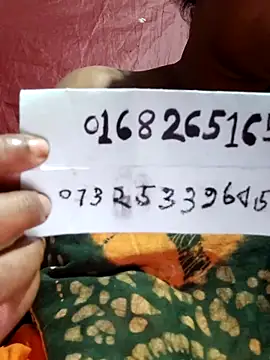 0168265165
07325339615